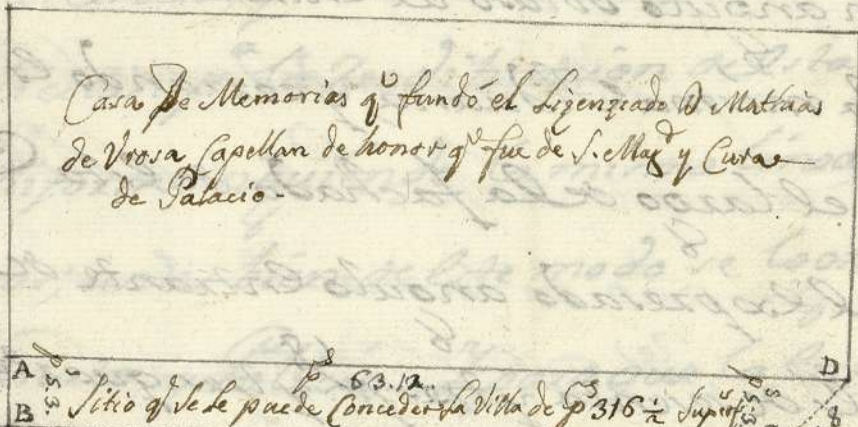 Casa De Memorias qe fundó el Lizenziado D Mathias
de Vrosa Capellan de honor qe fue de S. Magd y Cura
de Palacio.
A ps 63.12. D
B ps 5 3. Sitio qe se le puede Conceder la Villa de ps 316 1/2 Superfs ps 5 3 8